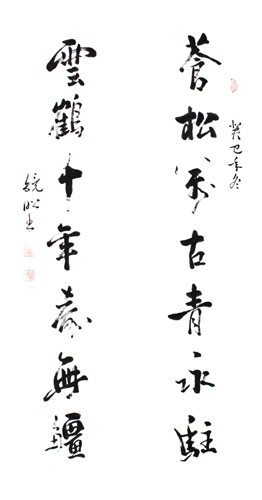 癸巳年冬
蒼松萬古青永駐
雲鶴十年壽無疆